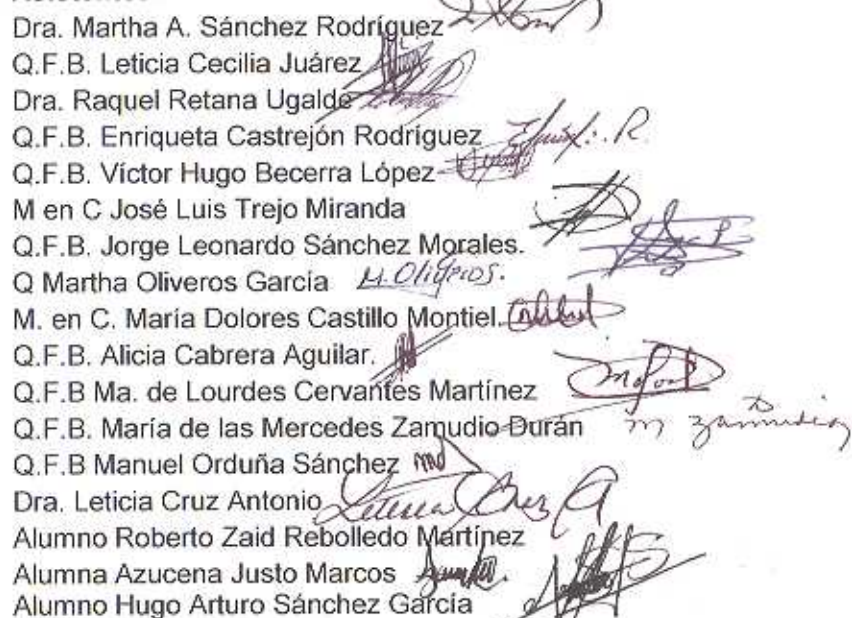 Dra. Martha A. Sánchez Rodríguez
Q.F.B. Leticia Cecilia Juárez
Dra. Raquel Retana Ugalde
Q.F.B. Enriqueta Castrejón Rodríguez
Q.F.B. Víctor Hugo Becerra López
M en C José Luis Trejo Miranda
Q.F.B. Jorge Leonardo Sánchez Morales.
Q Martha Oliveros García M. Oliveros.
M. en C. María Dolores Castillo Montiel.
Q.F.B. Alicia Cabrera Aguilar.
Q.F.B Ma. de Lourdes Cervantes Martínez
Q.F.B. María de las Mercedes Zamudio Durán m zamudio
Q.F.B Manuel Orduña Sánchez
Dra. Leticia Cruz Antonio Leticia Cruz A
Alumno Roberto Zaid Rebolledo Martínez
Alumna Azucena Justo Marcos
Alumno Hugo Arturo Sánchez García